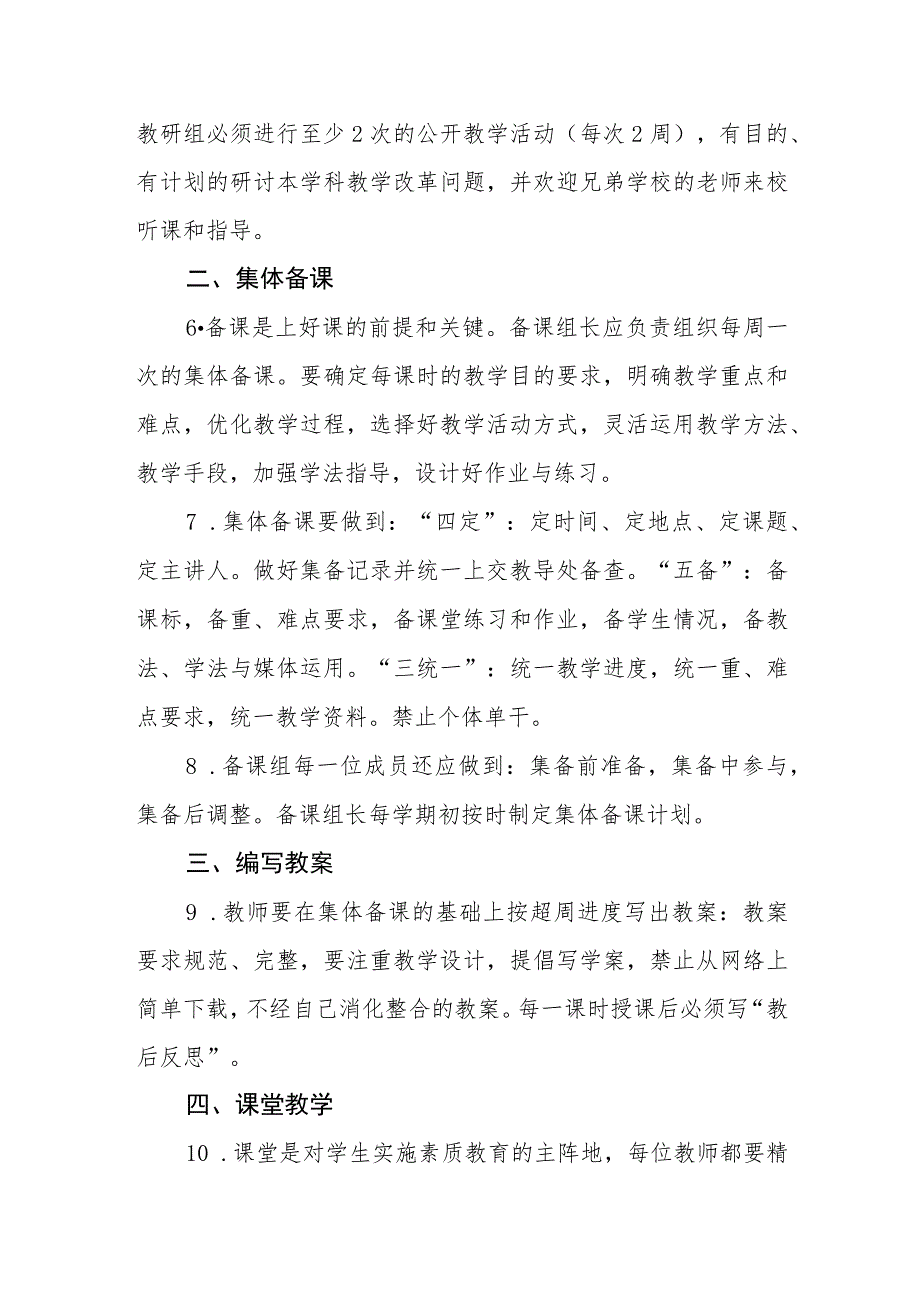 教研组必须进行至少2次的公开教学活动（每次2周），有目的、
有计划的研讨本学科教学改革问题，并欢迎兄弟学校的老师来校
听课和指导。
二、集体备课
6•备课是上好课的前提和关键。备课组长应负责组织每周一
次的集体备课。要确定每课时的教学目的要求，明确教学重点和
难点，优化教学过程，选择好教学活动方式，灵活运用教学方法、
教学手段，加强学法指导，设计好作业与练习。
7 .集体备课要做到：“四定”：定时间、定地点、定课题、
定主讲人。做好集备记录并统一上交教导处备查。“五备”：备
课标，备重、难点要求，备课堂练习和作业，备学生情况，备教
法、学法与媒体运用。“三统一”：统一教学进度，统一重、难
点要求，统一教学资料。禁止个体单干。
8 .备课组每一位成员还应做到：集备前准备，集备中参与，
集备后调整。备课组长每学期初按时制定集体备课计划。
三、编写教案
9 .教师要在集体备课的基础上按超周进度写出教案：教案
要求规范、完整，要注重教学设计，提倡写学案，禁止从网络上
简单下载，不经自己消化整合的教案。每一课时授课后必须写“教
后反思”。
四、课堂教学
10 .课堂是对学生实施素质教育的主阵地，每位教师都要精